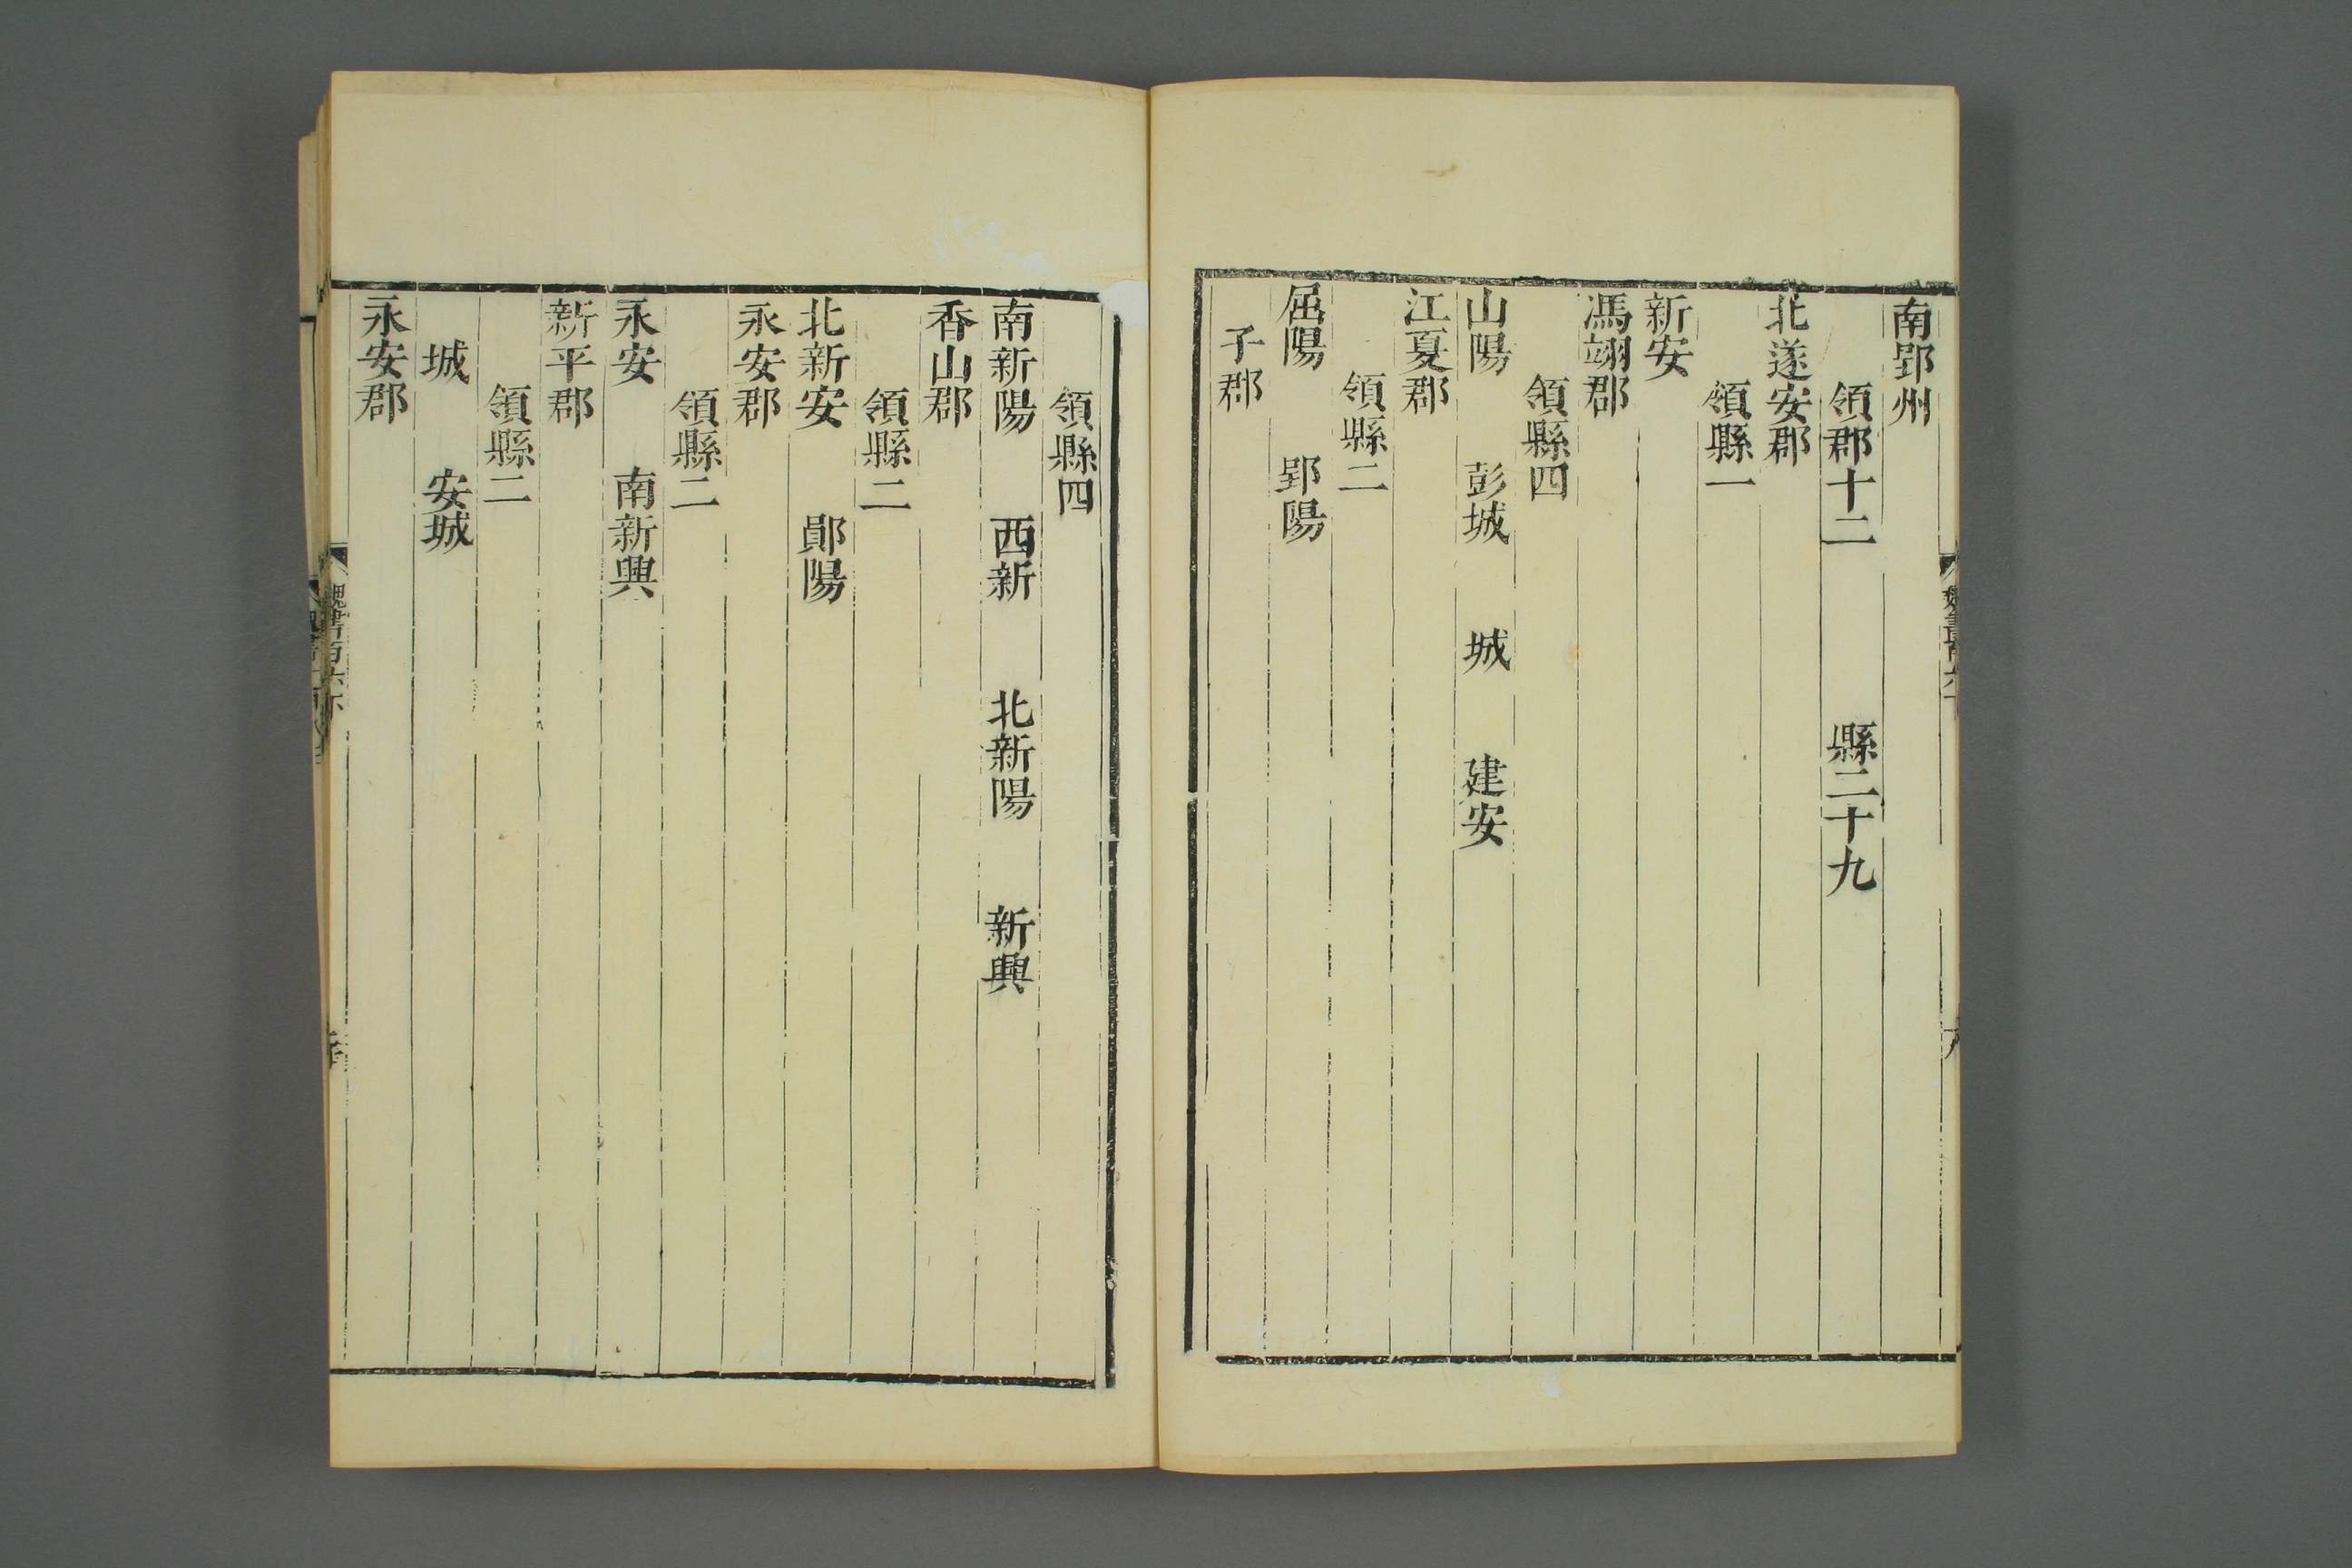 南郢州
領郡十二 縣二十九
北遂安郡
領縣一
新安
馮翊郡
領縣四
山陽 彭城 城 建安
江夏郡
領縣二
屈陽 郢陽
子郡
領縣四
南新陽 西新 北新陽 新興
香山郡
領縣二
北新安 鄖陽
永安郡
領縣二
永安 南新興
新平郡
領縣二
城 安城
永安郡
魏書百六下